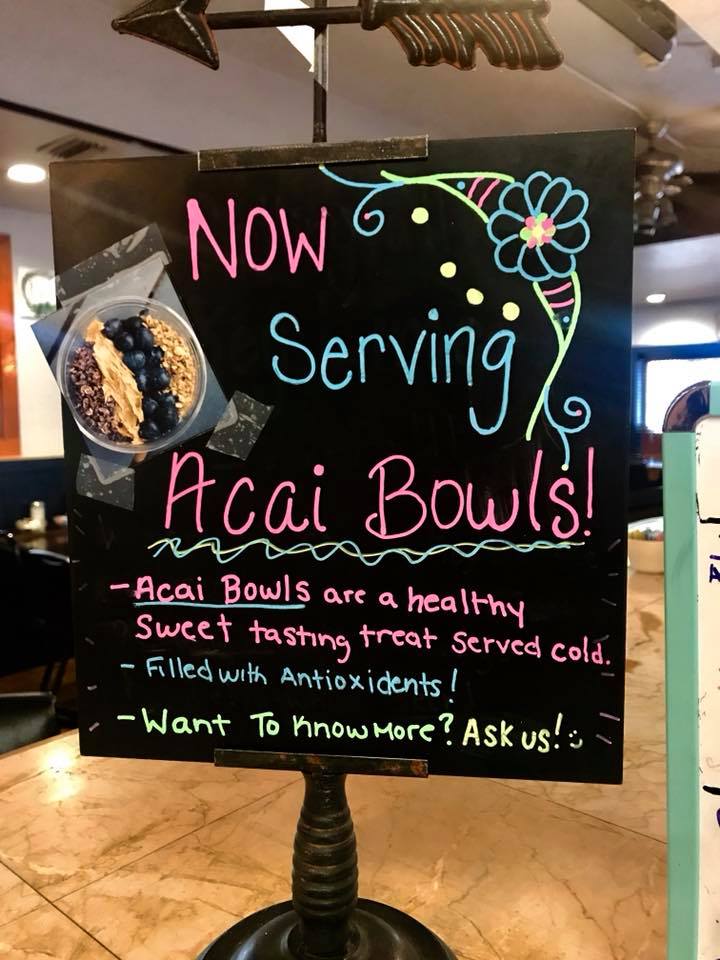 Now
Serving
Acai Bowls!
- Acai Bowls are a healthy
sweet tasting treat served cold.
- Filled with Antioxidents!
- Want To Know More? Ask us!